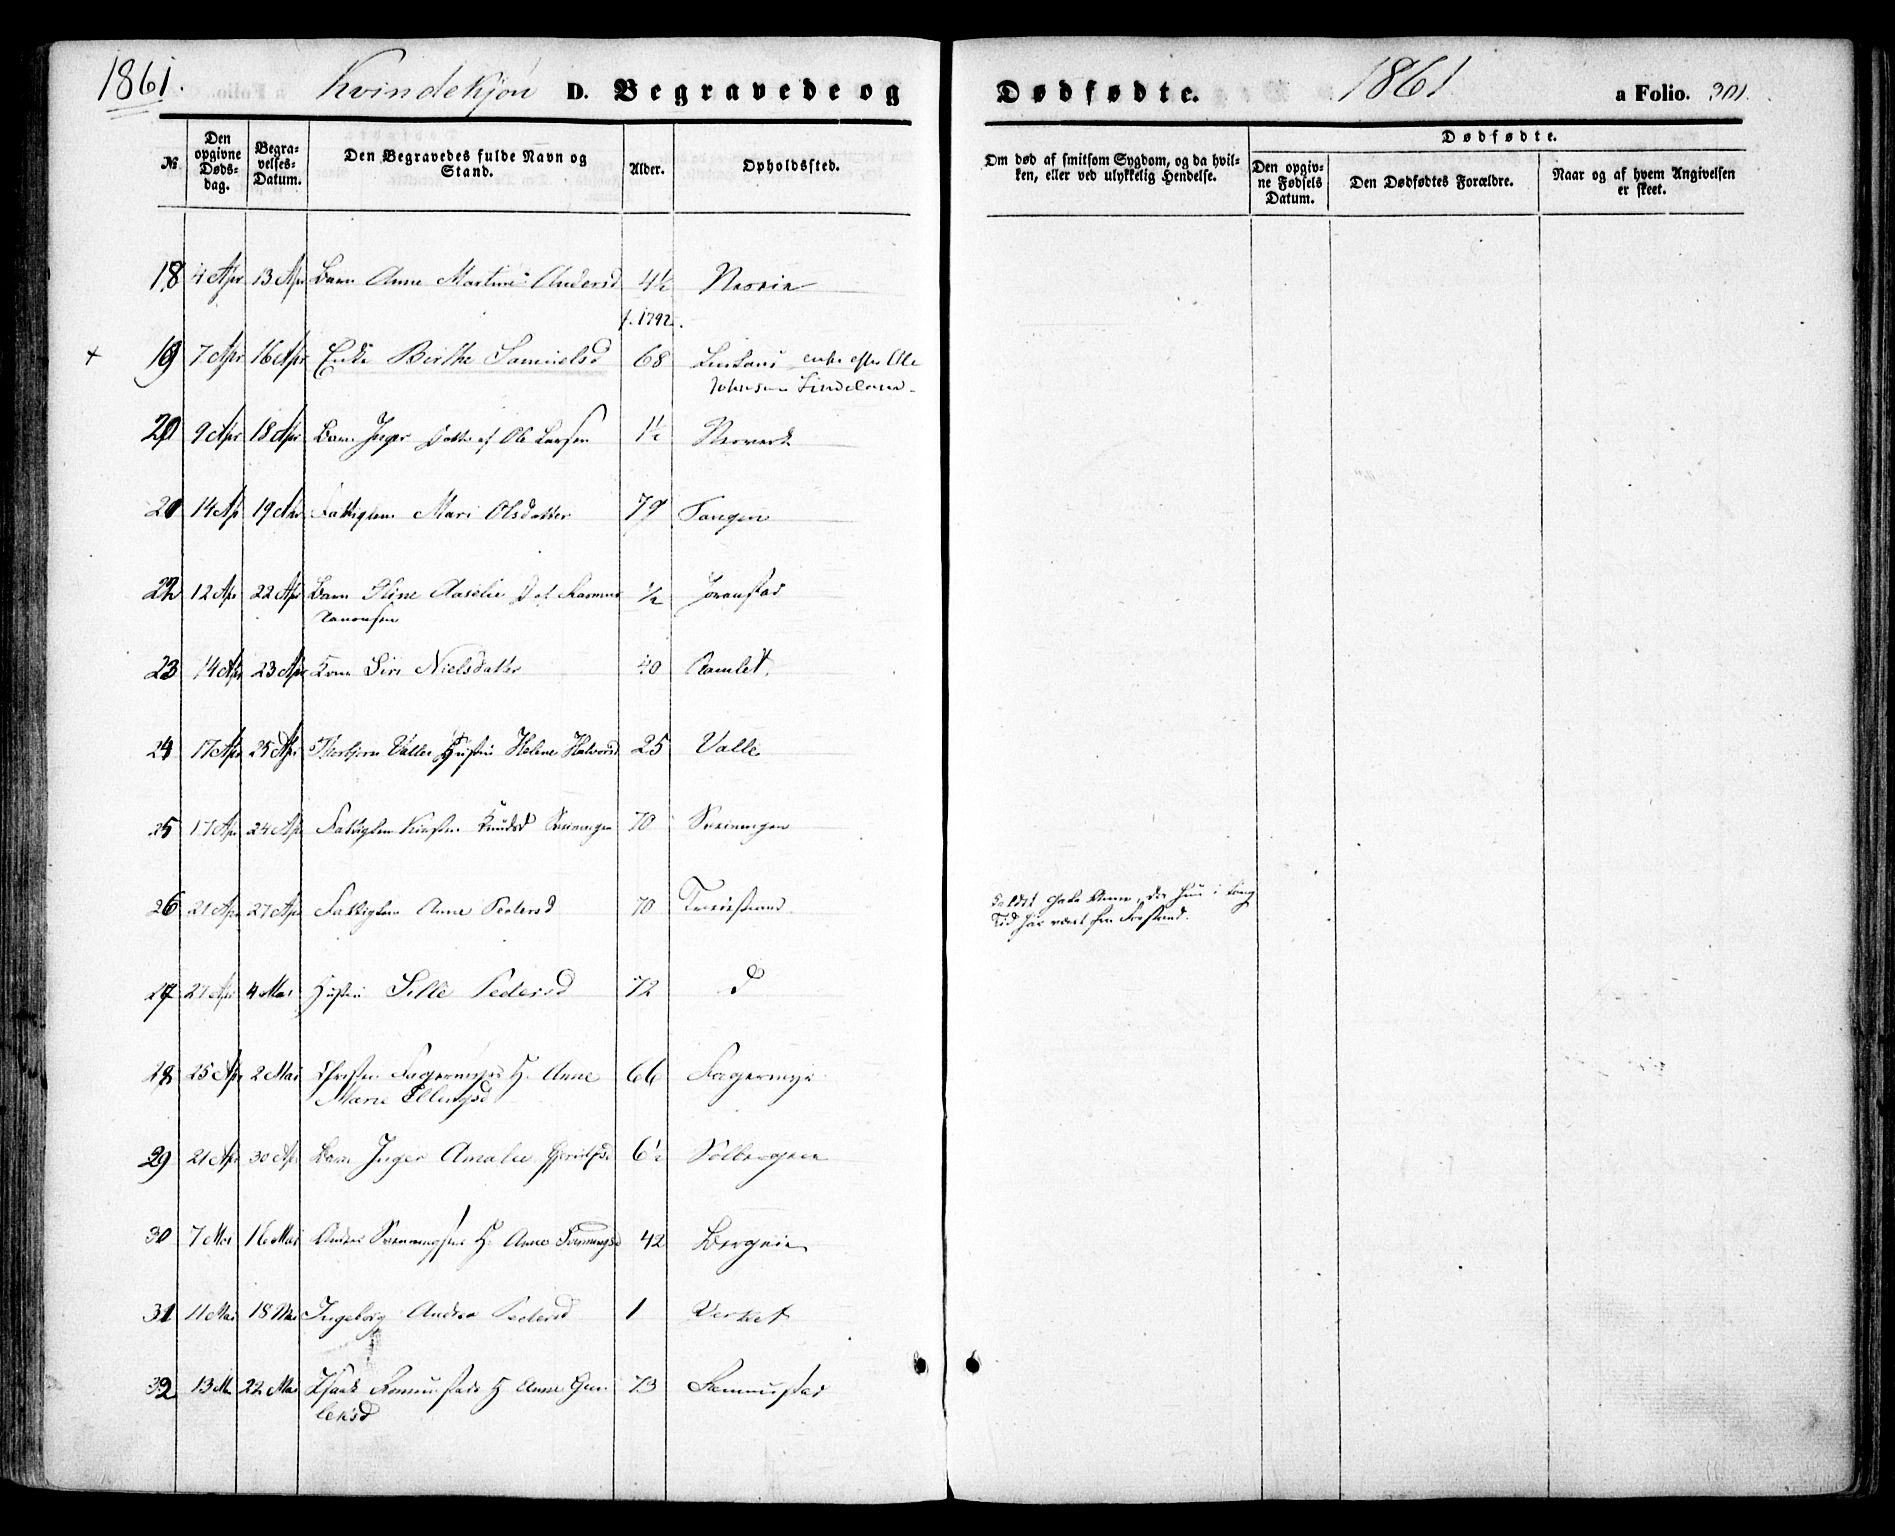 1861. Kvindekjøn D. Begravede og Dødfødte. 1861 a Folio. 301.
№ Den opgivne Døds-dag. Begra-velses-Datum. Den Begravedes fulde Navn og Stand. Alder. Opholdssted. Om død af smitsom Sygdom, og da hvil-ken, eller ved ulykkelig Hendelse. Dødfødte.
Den opgiv-ne Fødsels Datum. Den Dødfødtes Forældre. Naar og af hvem Angivelsen er skeet.
18 4 Apr 13 Apr Barn Anne Martine Andersd 4½
f. 1792.
+ 19 7 Apr 16 Apr Enke Birthe Samuelsd 68 enke efter Ole
Johnsen
20 9 Apr 18 Apr Barn Inger Datter af Ole Larsen 1½
20 14 Ap 19 Apr Fattiglem Mari Olsdatter 79 Tangen
22 12 Apr 22 Apr Barn Aaselie D af ½
Aanonsen
23 14 Apr 23 Apr Kone Siri Nielsdatter 40 Ramlet.
24 17 Apr 25 Apr Thorbjørn Valles Hustru Helene Halvorsd 25 Valle
25 17 Apr 24 Apr Fattiglem Kirsten Knudsd 70
26 21 Apr 27 Apr Fattiglem Anne Pedersd 70
kaldet Anne, da hun i lang
Tid har været fra Forstand.
27 27 Apr 4 Mai Hustru Sille Pedersd 72 D
28 25 Apr 2 Mai Christen Fagermyrs H. Anne 66 Fagermyr
Marie Ellingsd
29 21 Apr 30 Apr Barn Inger Amalie 6½ Solbergeie
30 7 Mai 16 Mai Anders H. Anne 42 Bergeie
31 11 Mai 18 Mai Ingeborg Andrea Pedersd 1 Verket
32 13 M 22 Mai Isaak H Anne Gun- 73
leksd